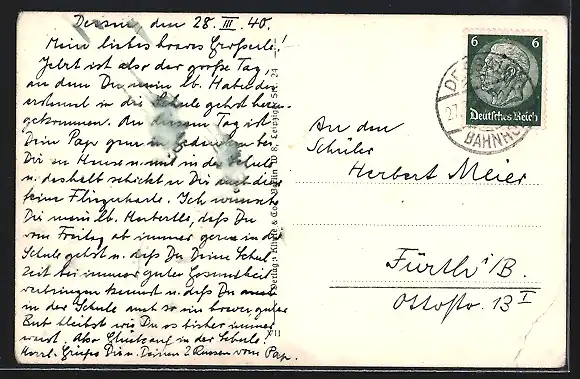 Dessau, den 28. III. 40.
Mein liebes braves Großerle!
Jetzt ist also der große Tag,
an dem Du mein lb. Haberl das
erstemal in die Schule gehst heran-
gekommen. An diesem Tag ist
Dein Papa ganz in Gedanken bei
Dir zu Hause u. mit in der Schule
u. deshalb schickt er Dir auch diese
feine Fliegerkarte. Ich wünsche
Dir mein lb. Herbertle, daß Du
vom Freitag ab immer gerne in die
Schule gehst u. daß Du Deine Schul-
zeit bei immer guter Gesundheit
verbringen kannst u. daß Du auch
in der Schule auch so ein braver guter
Bub bleibst wie Du es bisher immer
warst. Also Glückauf in der Schule!
Herzl. Grüße Dir u. Deinen 2 vom Pap.
Verlag: Klinke & Co., Berlin W 8, Leipziger Str. 24
VII
6 6
Deutsches Reich
DESSAU
27.
BAHNHOF
An den
Schüler
Herbert Meier
Fürth i/B.
Ottostr. 13 I